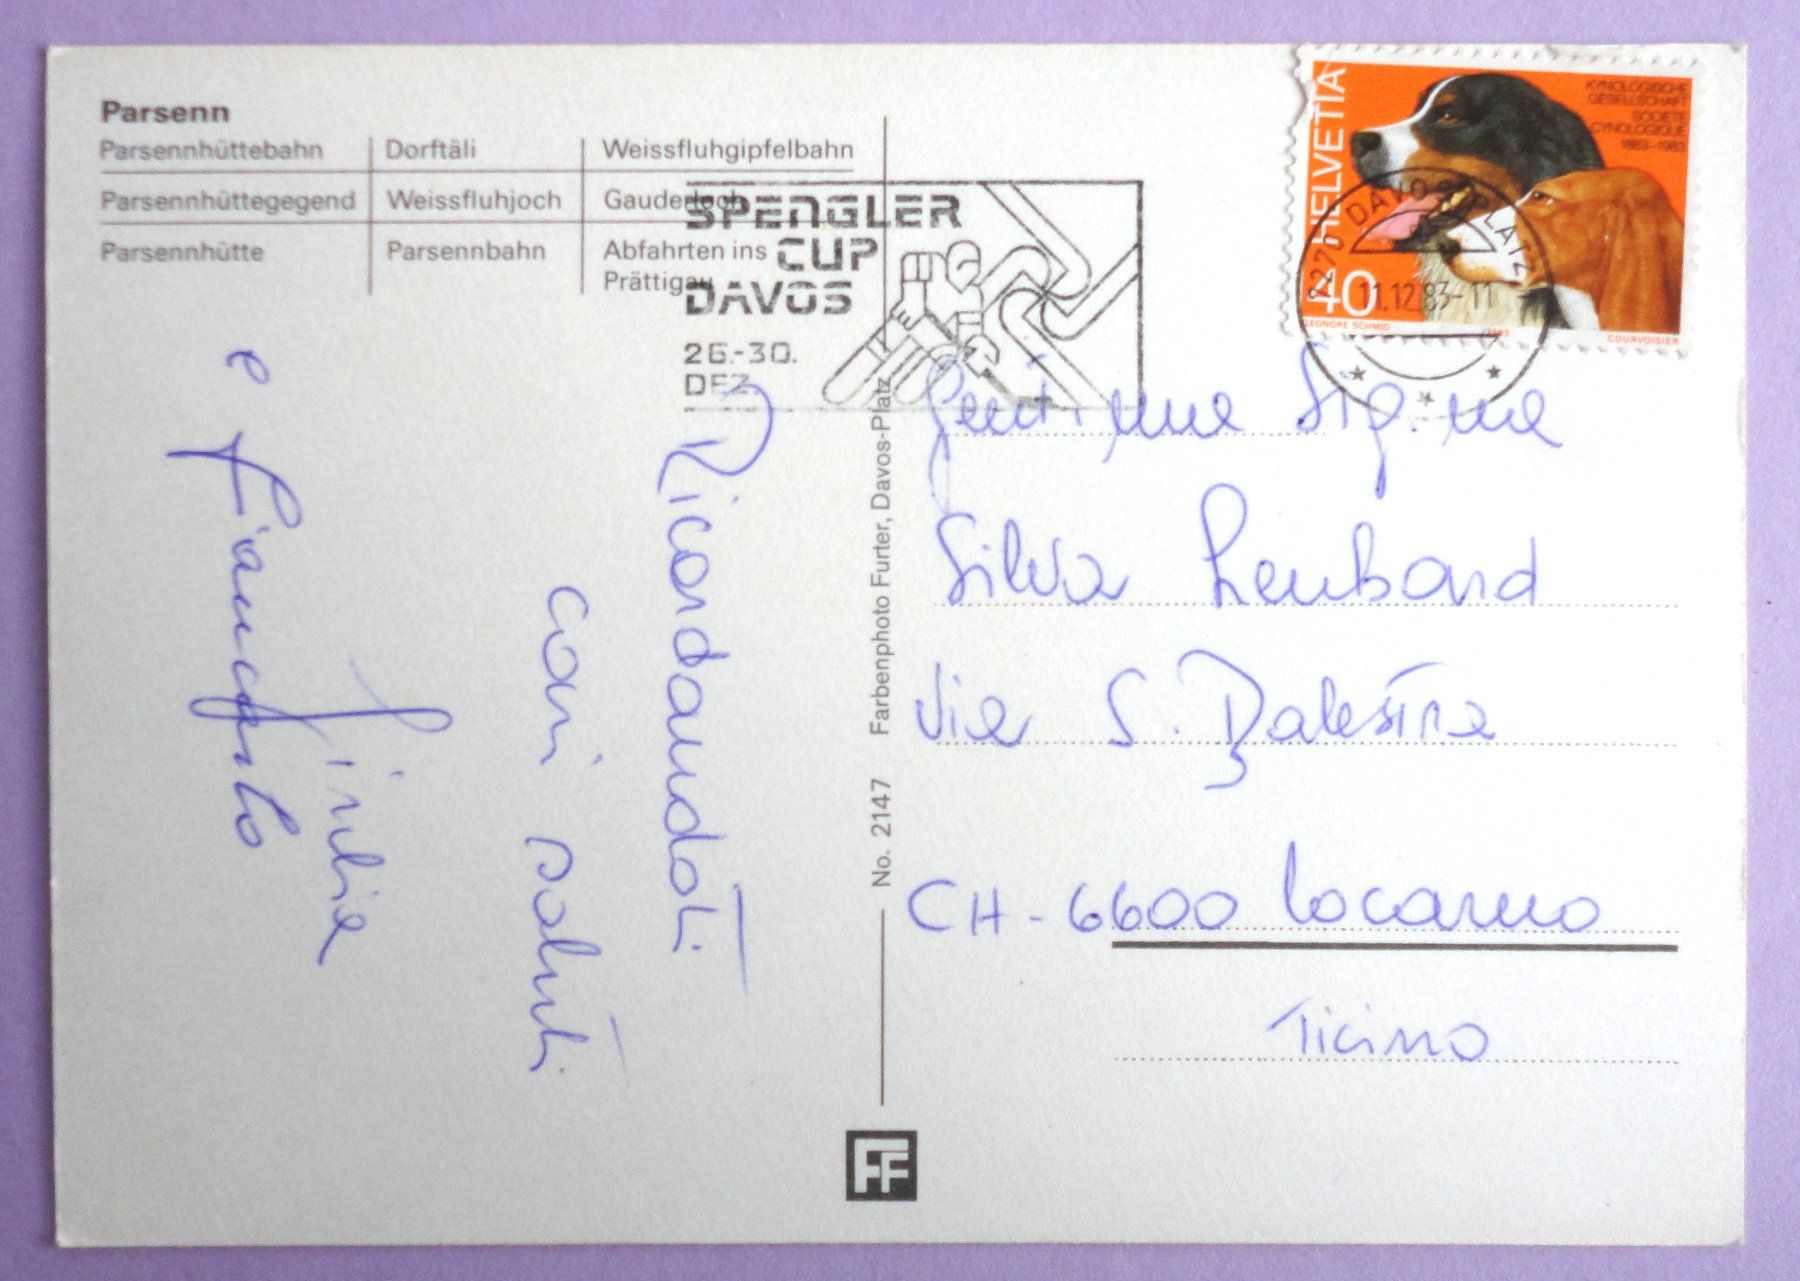 Parsenn
Parsennhüttebahn Dorftäli Weissfluhgipfelbahn
Parsennhüttegegend Weissfluhjoch Gauderloch
Parsennhütte Parsennbahn Abfahrten ins
Prättigau
SPENGLER
CUP
DAVOS
26.-30.
DEZ.
HELVETIA
40
KYNOLOGISCHE
GESELLSCHAFT
SOCIETE
CYNOLOGIQUE
1883-1983
LEONORE SCHMID 1983 COURVOISIER
7270 DAVOS PLATZ
11.12.83-11
Ricordandoti
cari saluti
Cinzia
e Giancarlo
No. 2147 Farbenphoto Furter, Davos-Platz
Gent.ma Sig.na
Silva
Via S. Balestra
CH-6600 Locarno
Ticino
FF